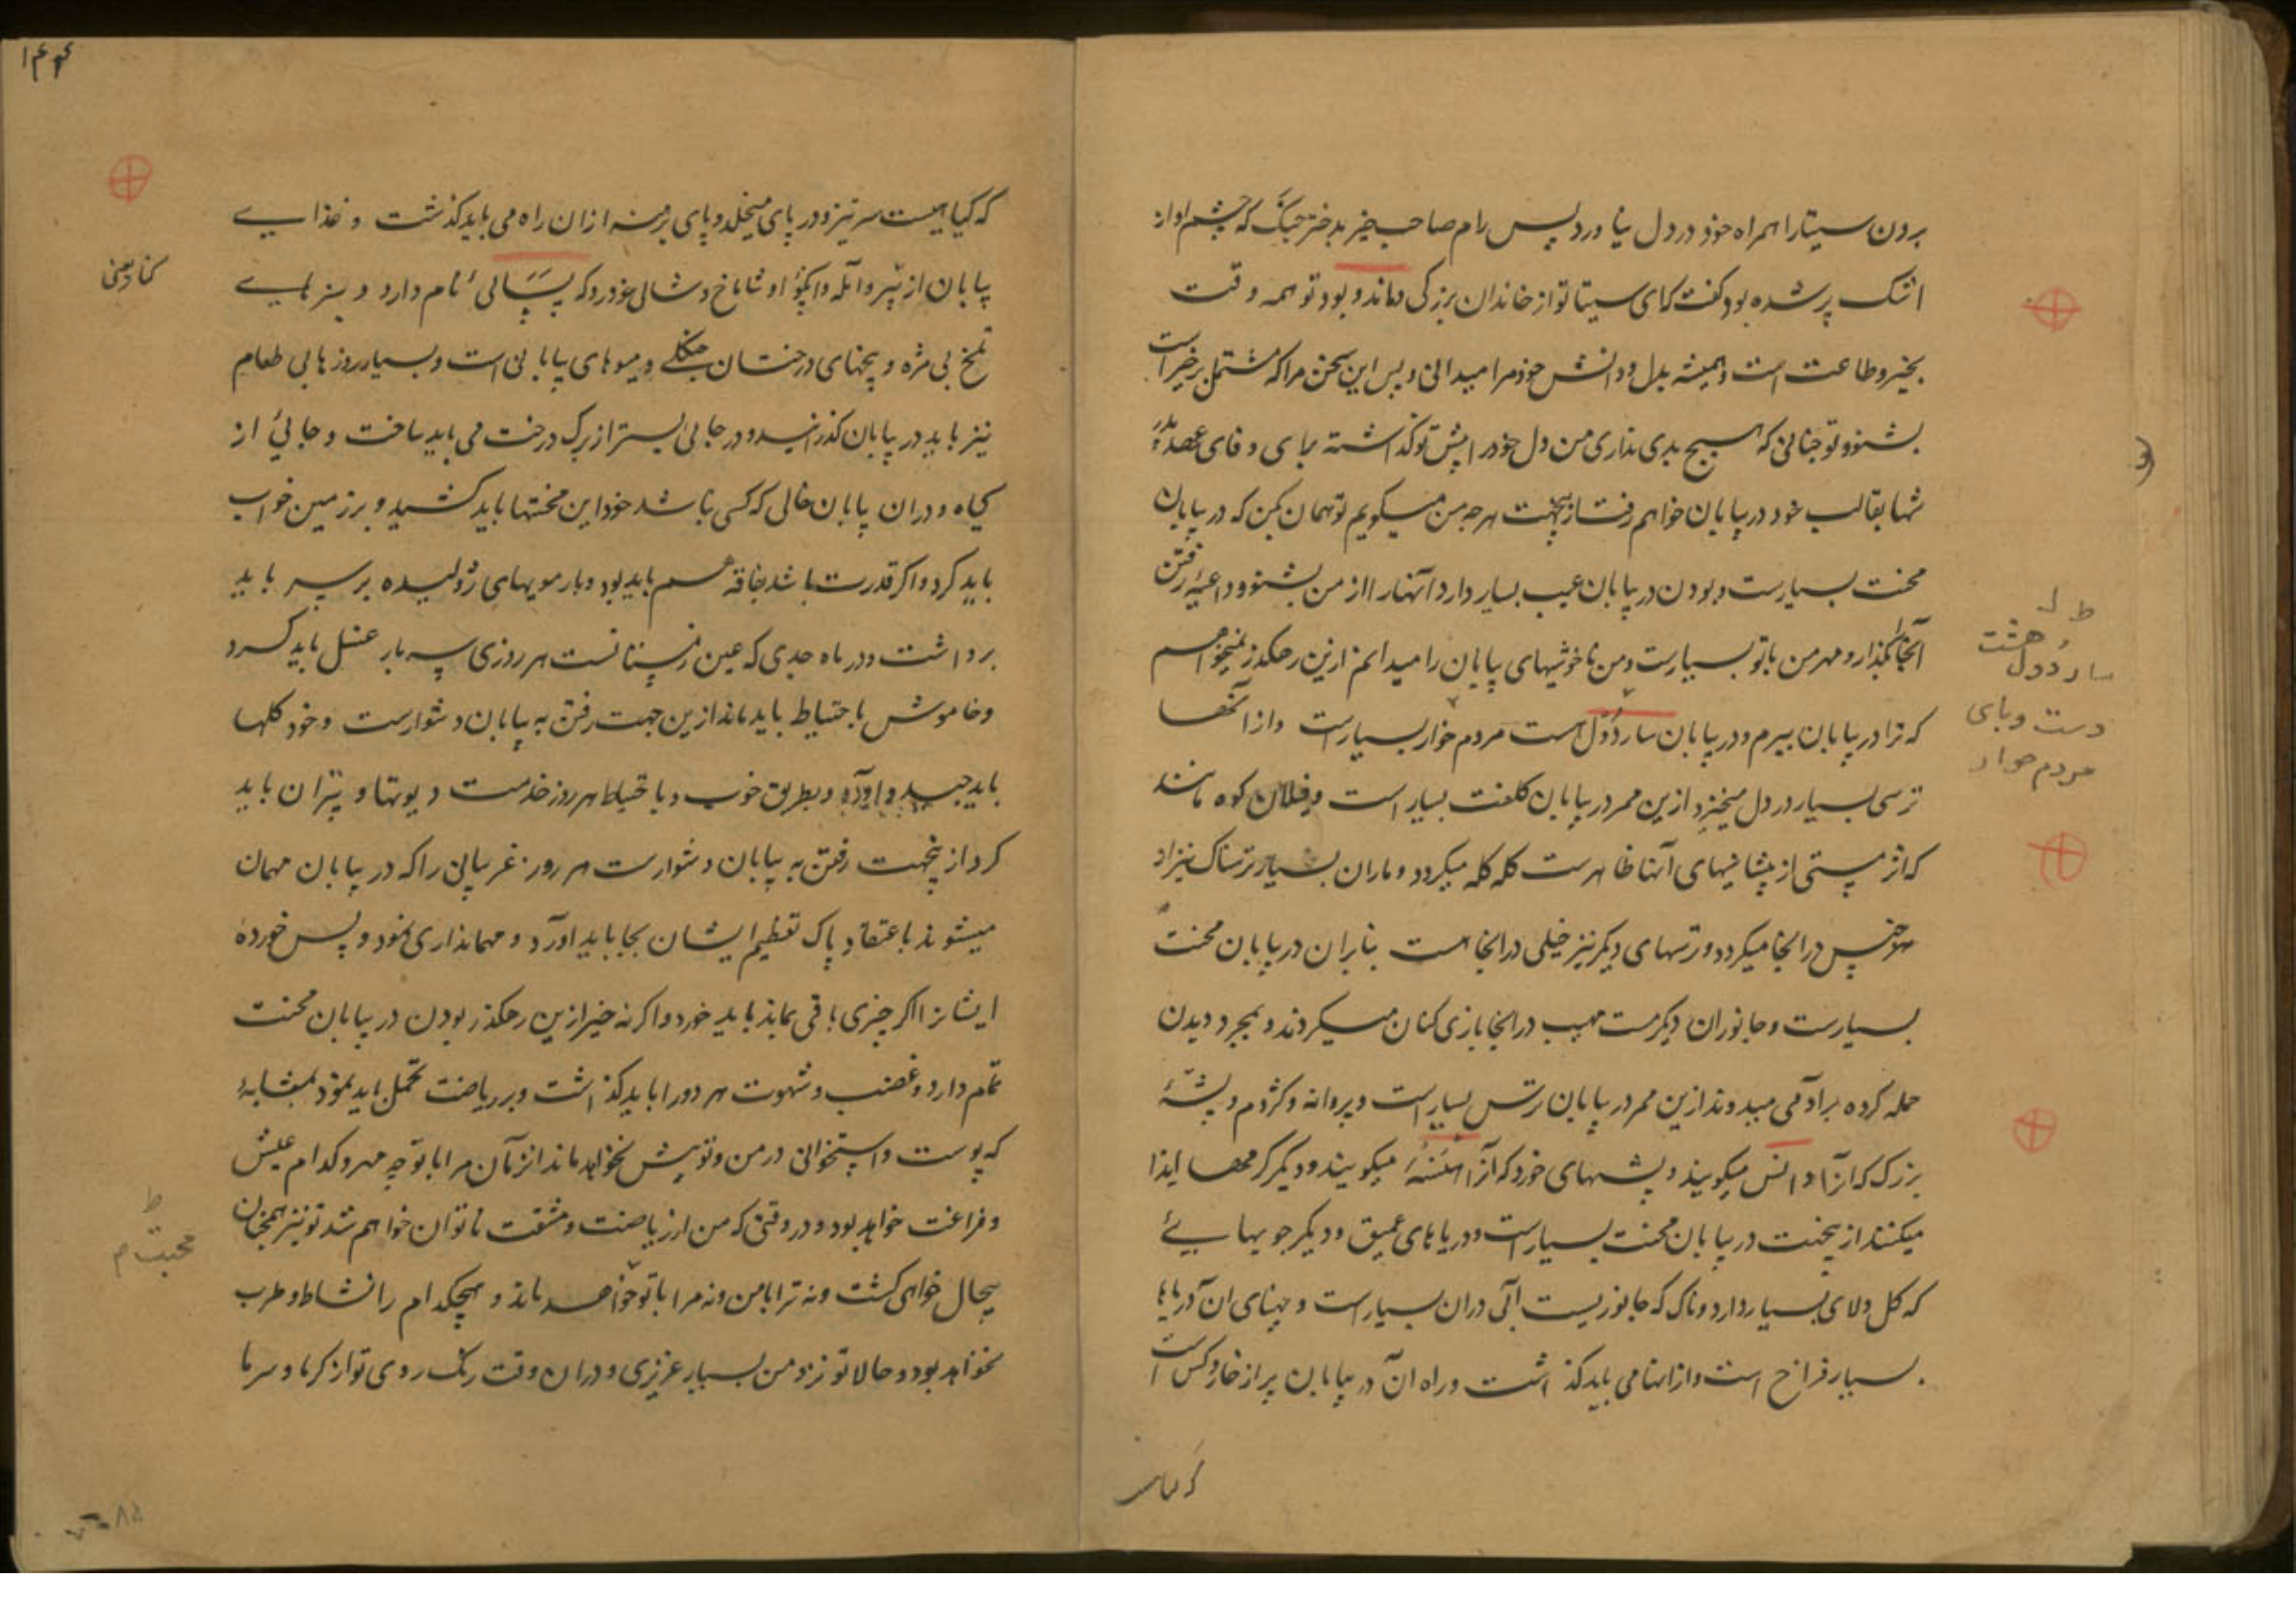 بردن سیتا را همراه خود در دل نیاورد پس رام صاحب خیر بدختر جنک که چشم او از
اشک پر شده بود کفت که ای سیتا تو از خاندان بزرکی و ماند و بود تو همه وقت
بخیر و طاعت است و همیشه بدل و دانش خود مرا میدانی و پس این سخن مرا که مشتمل بر خیر است
بشنو و تو چنانی که هیچ بدی نداری من دل خود را پیش تو کذاشته برای وفای عهد پدر
تنها بقالب خود در بیابان خواهم رفت ازینجهت هر چه من میکویم تو همان کن که در بیابان
محنت بسیارست و بودن در بیابان عیب بسیار دارد آنها را از من بشنو و داعیهٔ رفتن
آنجا بکذار و مهر من با تو بسیارست و من ناخوشیهای بیابان را میدانم ازین رهکذر نمیخواهم
که ترا در بیابان ببرم و در بیابان ساردول است مردم خوار بسیارست و از آنها
ترسی بسیار در دل میخیزد ازین ممر در بیابان کلفت بسیار است و فیلان کوه مانند
که اثر مستی از پیشانیهای آنها ظاهرست کله کله میکردد و ماران بسیار ترسناک نیز از
هر جنس در انجا میکردد و ترسهای دیکر نیز خیلی در انجا هست بنابران در بیابان محنت
بسیارست و جانوران دیکر مست مهیب در انجا بازی کنان میکردند و بمجرد دیدن
حمله کرده بر آدمی میدوند ازین ممر در بیابان ترس بسیار است و پروانه و کژدم و پشهٔ
بزرک که آنرا دانس میکویند و پشهای خورد که آنرا میکویند و دیکر کرمها ایذا
میکنند ازینجهت در بیابان محنت بسیار است و دریاهای عمیق و دیکر جویهایے
که کل و لای بسیار دارد و ناک که جانوریست آبی دران بسیار است و پهنای ان دریاها
بسیار فراخ است و از انها می باید کذشت و راه آن در بیابان پر از خار و کس است
که کیاهیست سرتیز و در پای میخلد و پای برهنه ازان راه می باید کذشت و غذایے
بیابان از بیر و آمله و انکو و شاماخ و شالی خودرو که پسالی نام دارد و سبزیهایے
تلخ بی مزه و بیخهای درختان جنکلے و میوهای بیابانی است و بسیار روزها بی طعام
نیز باید در بیابان کذرانید و در جائی بستر از برک درخت می باید ساخت و جائی از
کیاه و دران بیابان خالی که کسی نباشد خود این محنتها باید کشید و بر زمین خواب
باید کرد و اکر قدرت باشد بفاقه هم باید بود و بار مویهای ژولیده بر سر باید
برداشت و در ماه جدی که عین زمستانست هر روزی سه بار غسل باید کرد
و خاموش با حتیاط باید ماند ازین جهت رفتن به بیابان دشوارست و خود کلها
باید چید و آورد و بطریق خوب و با حتیاط هر روز خدمت دیوتها و پتران باید
کرد ازینجهت رفتن به بیابان دشوارست هر روز غریبانی را که در بیابان مهمان
میشوند با عتقاد پاک تعظیم ایشان بجا باید آورد و مهمانداری نمود و پس خوردهٔ
ایشان اکر چیزی باقی بماند باید خورد و اکر نه خیر ازین رهکذر بودن در بیابان محنت
تمام دارد و غضب و شهوت هر دو را باید کذاشت و بر ریاضت تحمل باید نمود بمثابهٔ
که پوست و استخوانی در من و تو بیش نخواهد ماند انزمان مرا با تو چه مهر و کدام عیش
و فراغت خواهد بود و در وقتی که من از ریاضت و مشقت ناتوان خواهم شد تو نیز همچنان
بیحال خواهی کشت و نه ترا با من و نه مرا با تو خواهد ماند و هیچکدام را نشاط و طرب
نخواهد بود و حالا تو نزد من بسیار عزیزی و دران وقت رنک روی تو از کرما و سرما
ساردول هشت
دست و پای
مردم خوار
که کیاهیست
محبت م